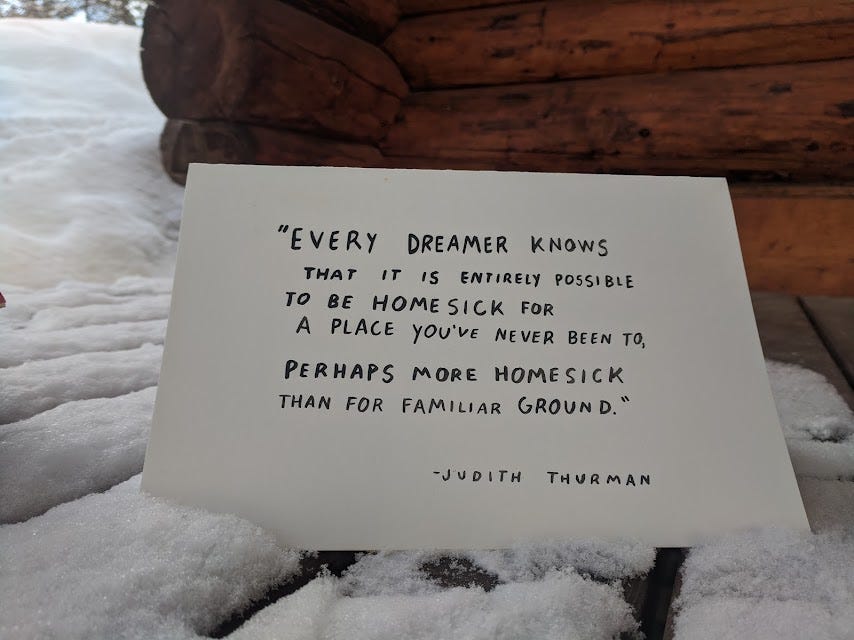 "EVERY DREAMER KNOWS
THAT IT IS ENTIRELY POSSIBLE
TO BE HOMESICK FOR
A PLACE YOU'VE NEVER BEEN TO,
PERHAPS MORE HOMESICK
THAN FOR FAMILIAR GROUND."
-JUDITH THURMAN